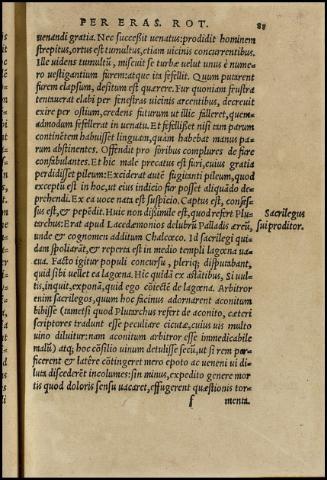 PER ERAS. ROT. 88
uenandi gratia. Nec successit uenatus: prodidit hominem
strepitus, ortus est tumultus, etiam uicinis concurrentibus.
Ille uidens tumultũ, miscuit se turbæ uelut unus è nume-
ro uestigantium furem: atque ita fefellit. Quum putarent
furem elapsum, desitum est quærere. Fur quoniam frustra
tentauerat elabi per fenestras uicinis arcentibus, decreuit
exire per ostium, credens futurum ut illic falleret, quem-
admodum fefellerat in uenatu. Et fefellisset nisi tam parum
continẽtem habuisset linguam, quàm habebat manus pa-
rum abstinentes. Offendit pro foribus complures de fure
confabulantes. Et hic male precatus est furi, cuius gratia
perdidisset pileum: Exciderat autẽ fugiẽti pileum, quod
exceptũ est in hoc, ut eius indicio fur posset aliquãdo de-
prehendi. Ex ea uoce nata est suspicio. Captus est, confes-
sus est, & pepẽdit. Huic non dißimile est, quod refert Plu-
tarchus: Erat apud Lacedæmonios delubrũ Palladis æreũ,
unde & cognomen additum Chalcœco. Id sacrilegi qui-
dam spoliarãt, & reperta est in medio templi lagœna ua-
cua. Facto igitur populi concursu, pleriq; disputabant,
quid sibi uellet ea lagœna. Hic quidã ex astãtibus, Si uul-
tis, inquit, exponã, quid ego cõiectẽ de lagœna. Arbitror
enim sacrilegos, quum hoc facinus adornarent aconitum
bibisse (tametsi quod Plutarchus refert de aconito, cæteri
scriptores tradunt esse peculiare cicutæ, cuius uis multo
uino diluitur: nam aconitum arbitror esse immedicabile
malũ) atq; hoc cõsilio uinum detulisse secũ, ut si rem per-
ficerent & latêre cõtingeret mero epoto ac ueneni ui di-
luta discederẽt incolumes: sin minus, expedito genere mor
tis quod doloris sensu uacaret, effugerent quæstionis tor-
f menta.
Sacrilegus
sui proditor.